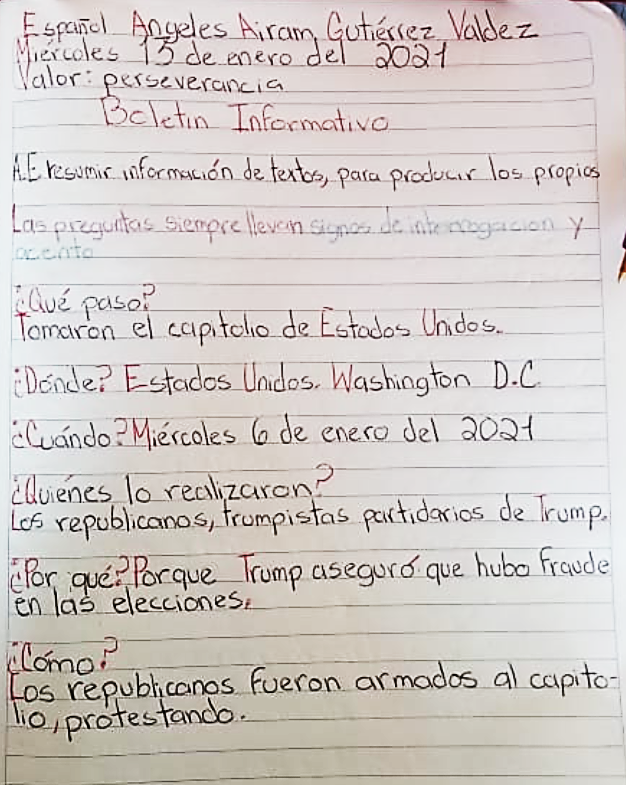 Español Angeles Airam Gutiérrez Valdez
Miércoles 13 de enero del 2021
Valor: perseverancia
Boletin Informativo
A.E resumir información de textos, para producir los propios
Las preguntas siempre llevan signos de interrogacion y
acento
¿Qué paso?
Tomaron el capitolio de Estados Unidos.
¿Dónde? Estados Unidos. Washington D.C
¿Cuándo? Miércoles 6 de enero del 2021
¿Quiénes lo realizaron?
Los republicanos, trumpistas partidarios de Trump.
¿Por qué? Porque Trump aseguró que hubo fraude
en las elecciones.
¿Cómo?
Los republicanos fueron armados al capito-
lio, protestando.